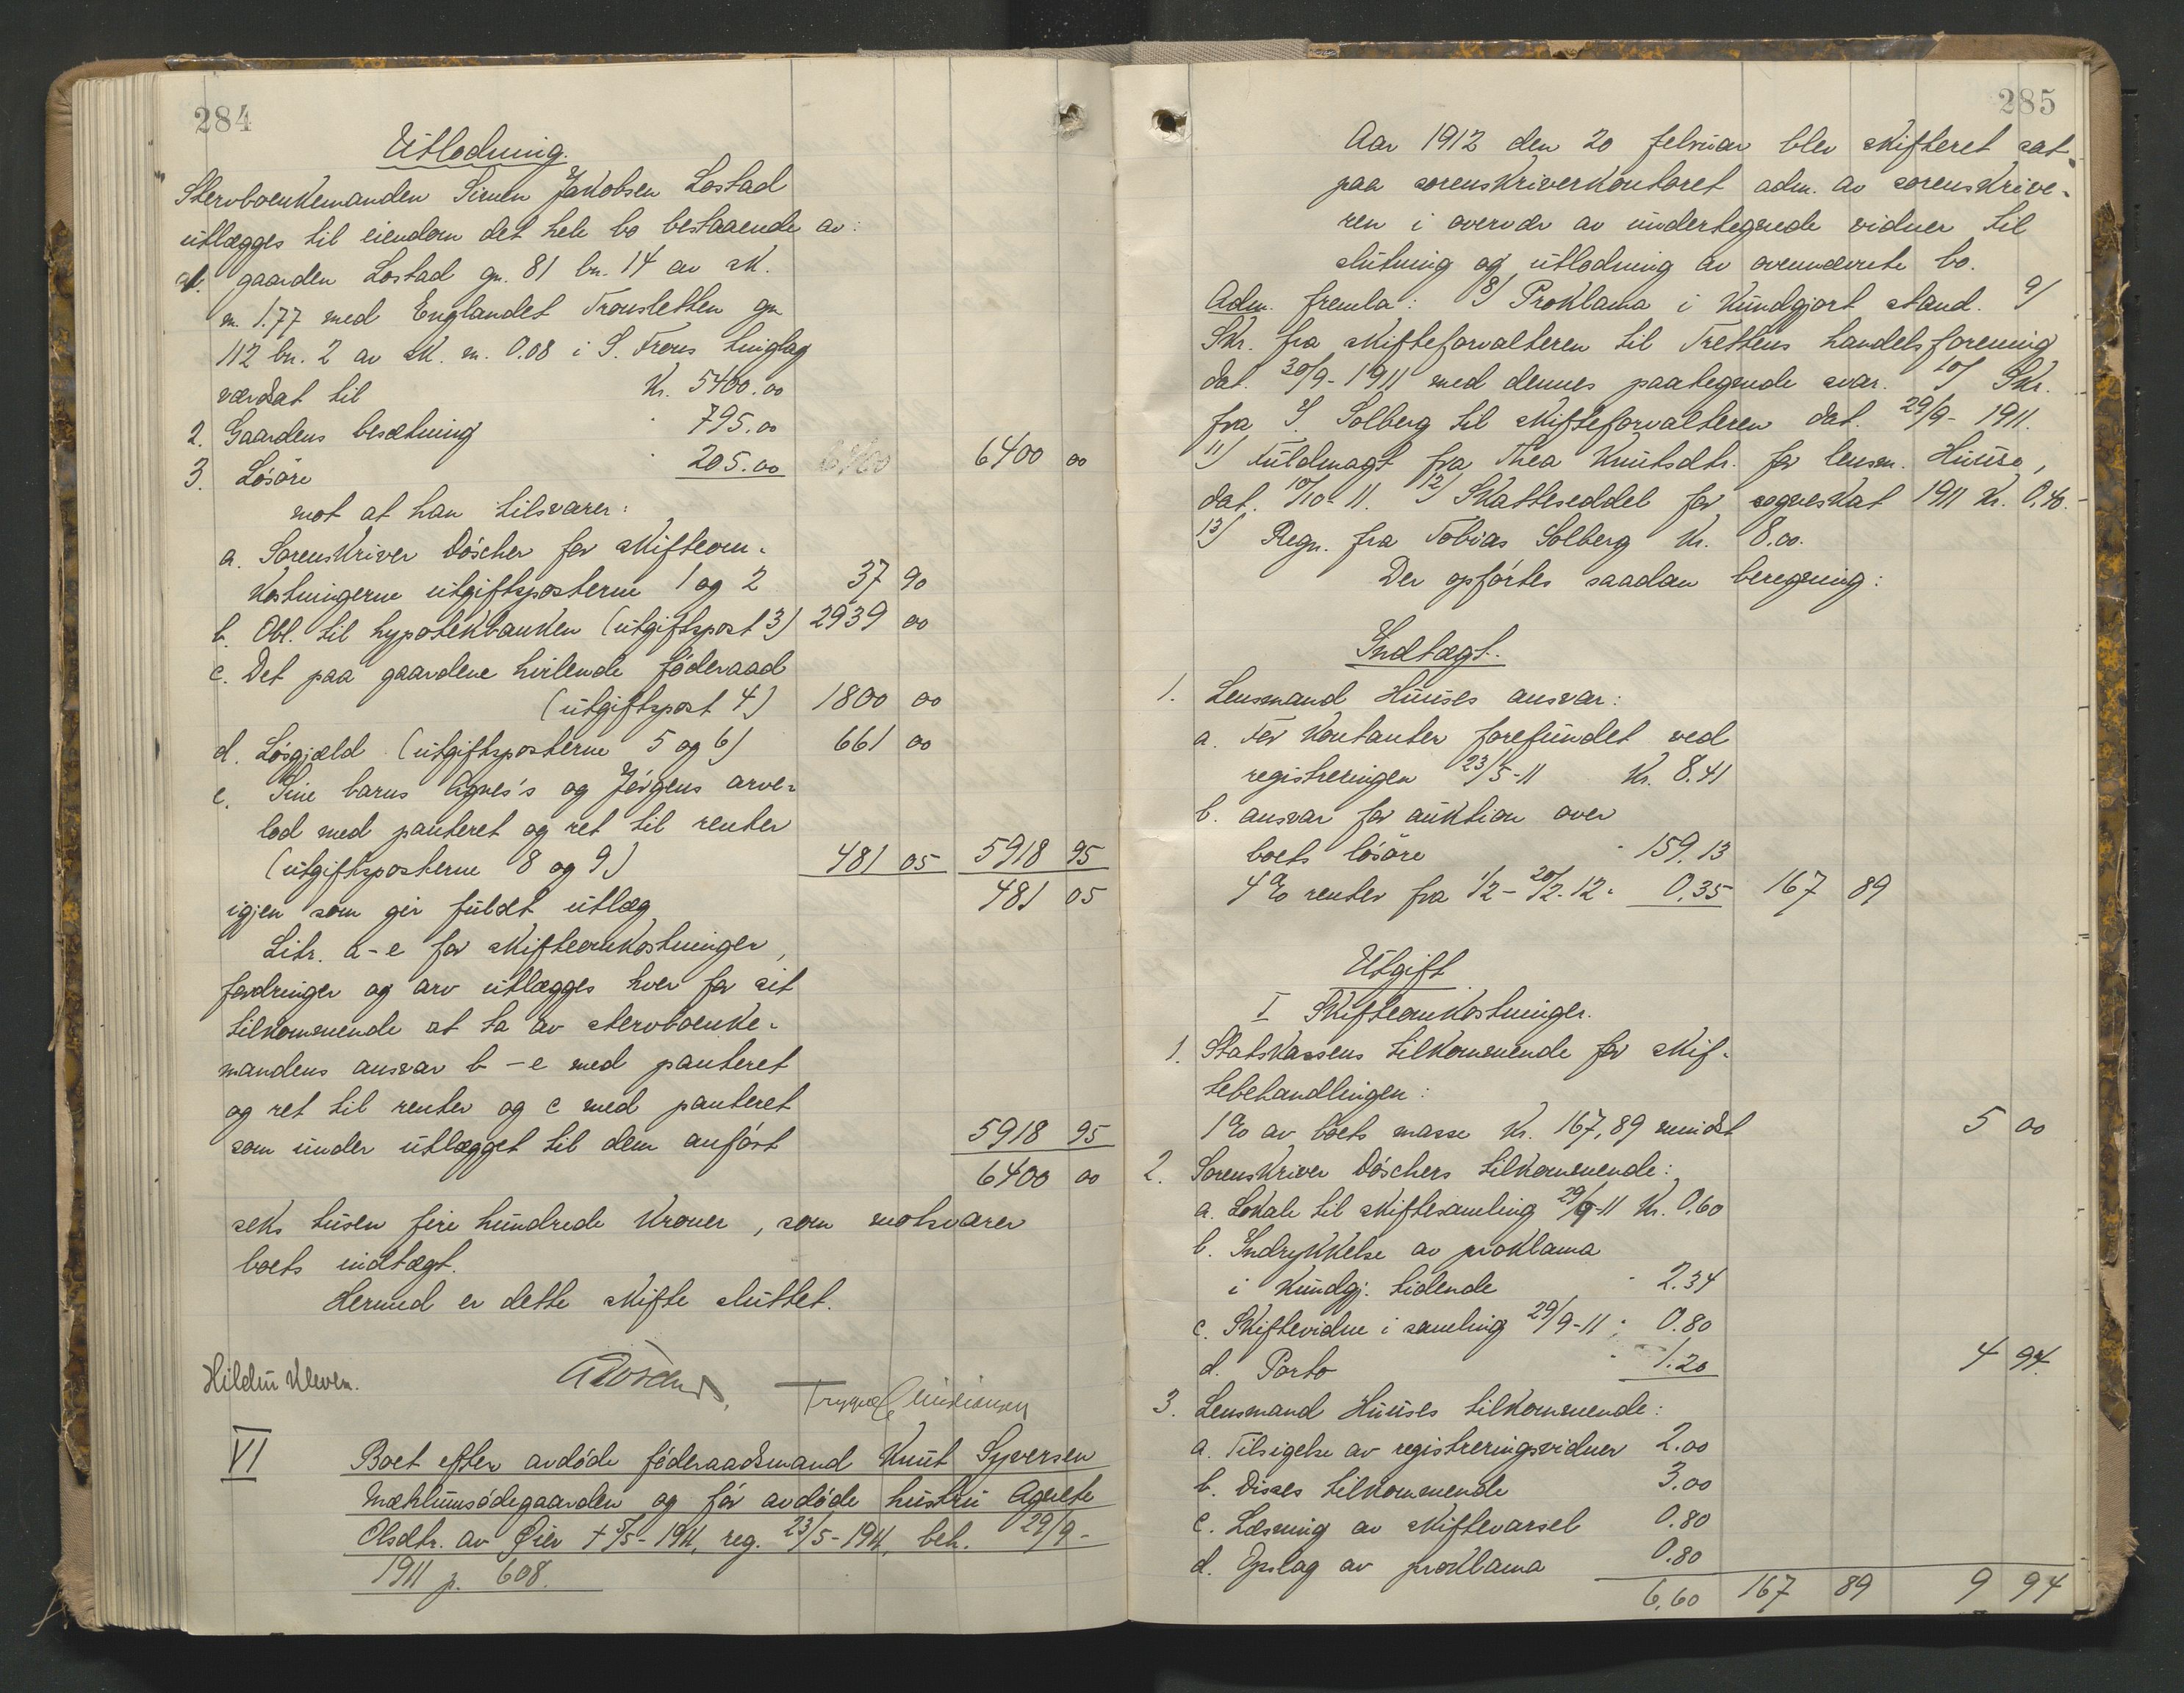 284
Utlodning.
Stervboenkemanden Simen Jakobsen Lostad
utlægges til eiendom det hele bo bestaaende av:
1. gaarden Lostad gn. 81 bn. 14 av sk.
m. 1.77 med Englandet Tronsletten gn
112 bn. 2 av sk. m. 0.08 i S. Frons tinglag
værdsat til Kr. 5400.00
2. Gaardens besætning " 795.00
3. Løsøre " 205.00 6400 00
mot at han tilsvarer:
a. Sorenskriver Döscher for skifteom-
kostningerne utgiftsposterne 1 og 2 37 90
b. Obl. til hypotekbanken (utgiftspost 3) 2939 00
c. Det paa gaardene hvilende föderaad
(utgiftspost 4) 1800 00
d. Løsgjæld (utgiftsposterne 5 og 6) 661 00
e. Sine barns Agnes's og Jörgens arve-
lod med panteret og ret til renter
(utgiftsposterne 8 og 9) 481 05 5918 95
igjen som gir fuldt utlæg 481 05
Litr. a-e for skifteomkostninger,
fordringer og arv utlægges hver for sit
tilkommende at ta av stervboenke-
mandens ansvar b-e med panteret
og ret til renter og c med panteret
som under utlægget til dem anfört 5918 95
6400 00
seks tusen fire hundrede kroner, som motsvarer
boets indtægt.
Hermed er dette skifte sluttet.
Hildur Kleven. ADöscher. Trygve Christiansen
VI
Boet efter avdöde föderaadsmand Knut Syversen
Mæhlumsödegaarden og för avdöde hustru Agnete
Olsdtr. av Øier + 5/5-1911, reg. 23/5-1911, beh. 29/9-
1911 p. 608.
285
Aar 1912 den 20 februar blev skifteret sat
paa sorenskriverkontoret adm. av sorenskrive-
ren i overvær av undertegnede vidner til
slutning og utlodning av ovennævnte bo.
Adm. fremla: 8) Proklama i kundgjort stand. 9)
Skr. fra skifteforvalteren til Trettens handelsforening
dat. 30/9-1911 med dennes paategnede svar. 10) Skr.
fra S. Solberg til skifteforvalteren dat. 29/9-1911.
11) Fuldmagt fra Thea Knutsdtr. for lensm. Huuse,
dat. 10/10-11. 12) Skatteseddel for sogneskat 1911 Kr. 0.40.-
13) Regn. fra Tobias Solberg Kr. 8.00.
Der opførtes saadan beregning:
Indtægt.
1. Lensmand Huuses ansvar:
a. For kontanter forefundet ved
registreringen 23/5-11 Kr. 8.41
b. ansvar for auktion over
boets løsøre " 159.13
4% renter fra 1/2-20/2-12 " 0.35 167 89
Utgift
I Skifteomkostninger.
1. Statskassens tilkommende for skif-
tebehandlingen:
1% av boets masse Kr. 167,89 mindst 5 00
2. Sorenskriver Döschers tilkommende:
a. Lokale til skiftesamling 29/9-11 Kr. 0.60
b. Indrykkelse av proklama
i kundgj. tidende " 2.34
c. Skiftevidne i samling 29/9-11 " 0.80
d. Porto " 1.20 4 94
3. Lensmand Huuses tilkommende:
a. Tilsigelse av registreringsvidner 2.00
b. Disses tilkommende 3.00
c. Læsning av skiftevarsel 0.80
d. Opslag av proklama 0.80
6.60 167 89 9 94